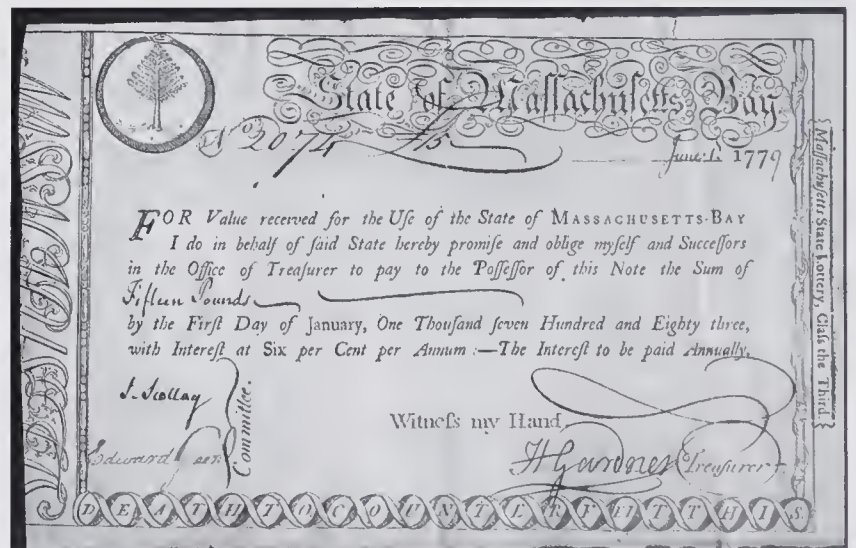 State of Maſſachuſetts Bay
No 2074 £15
June 1. 1779
FOR Value received for the Uſe of the State of MASSACHUSETTS-BAY
I do in behalf of ſaid State hereby promiſe and oblige myſelf and Succeſſors
in the Office of Treaſurer to pay to the Poſſeſſor of this Note the Sum of
Fifteen Pounds
by the Firſt Day of January, One Thouſand ſeven Hundred and Eighty three,
with Intereſt at Six per Cent per Annum :—The Intereſt to be paid Annually.
J. Scollay
Edward
Committee.
Witneſs my Hand,
H Gardner Treaſurer.
DEATH TO COUNTERFIT THIS.
{Maſſachuſetts State Lottery, Claſs the Third.}